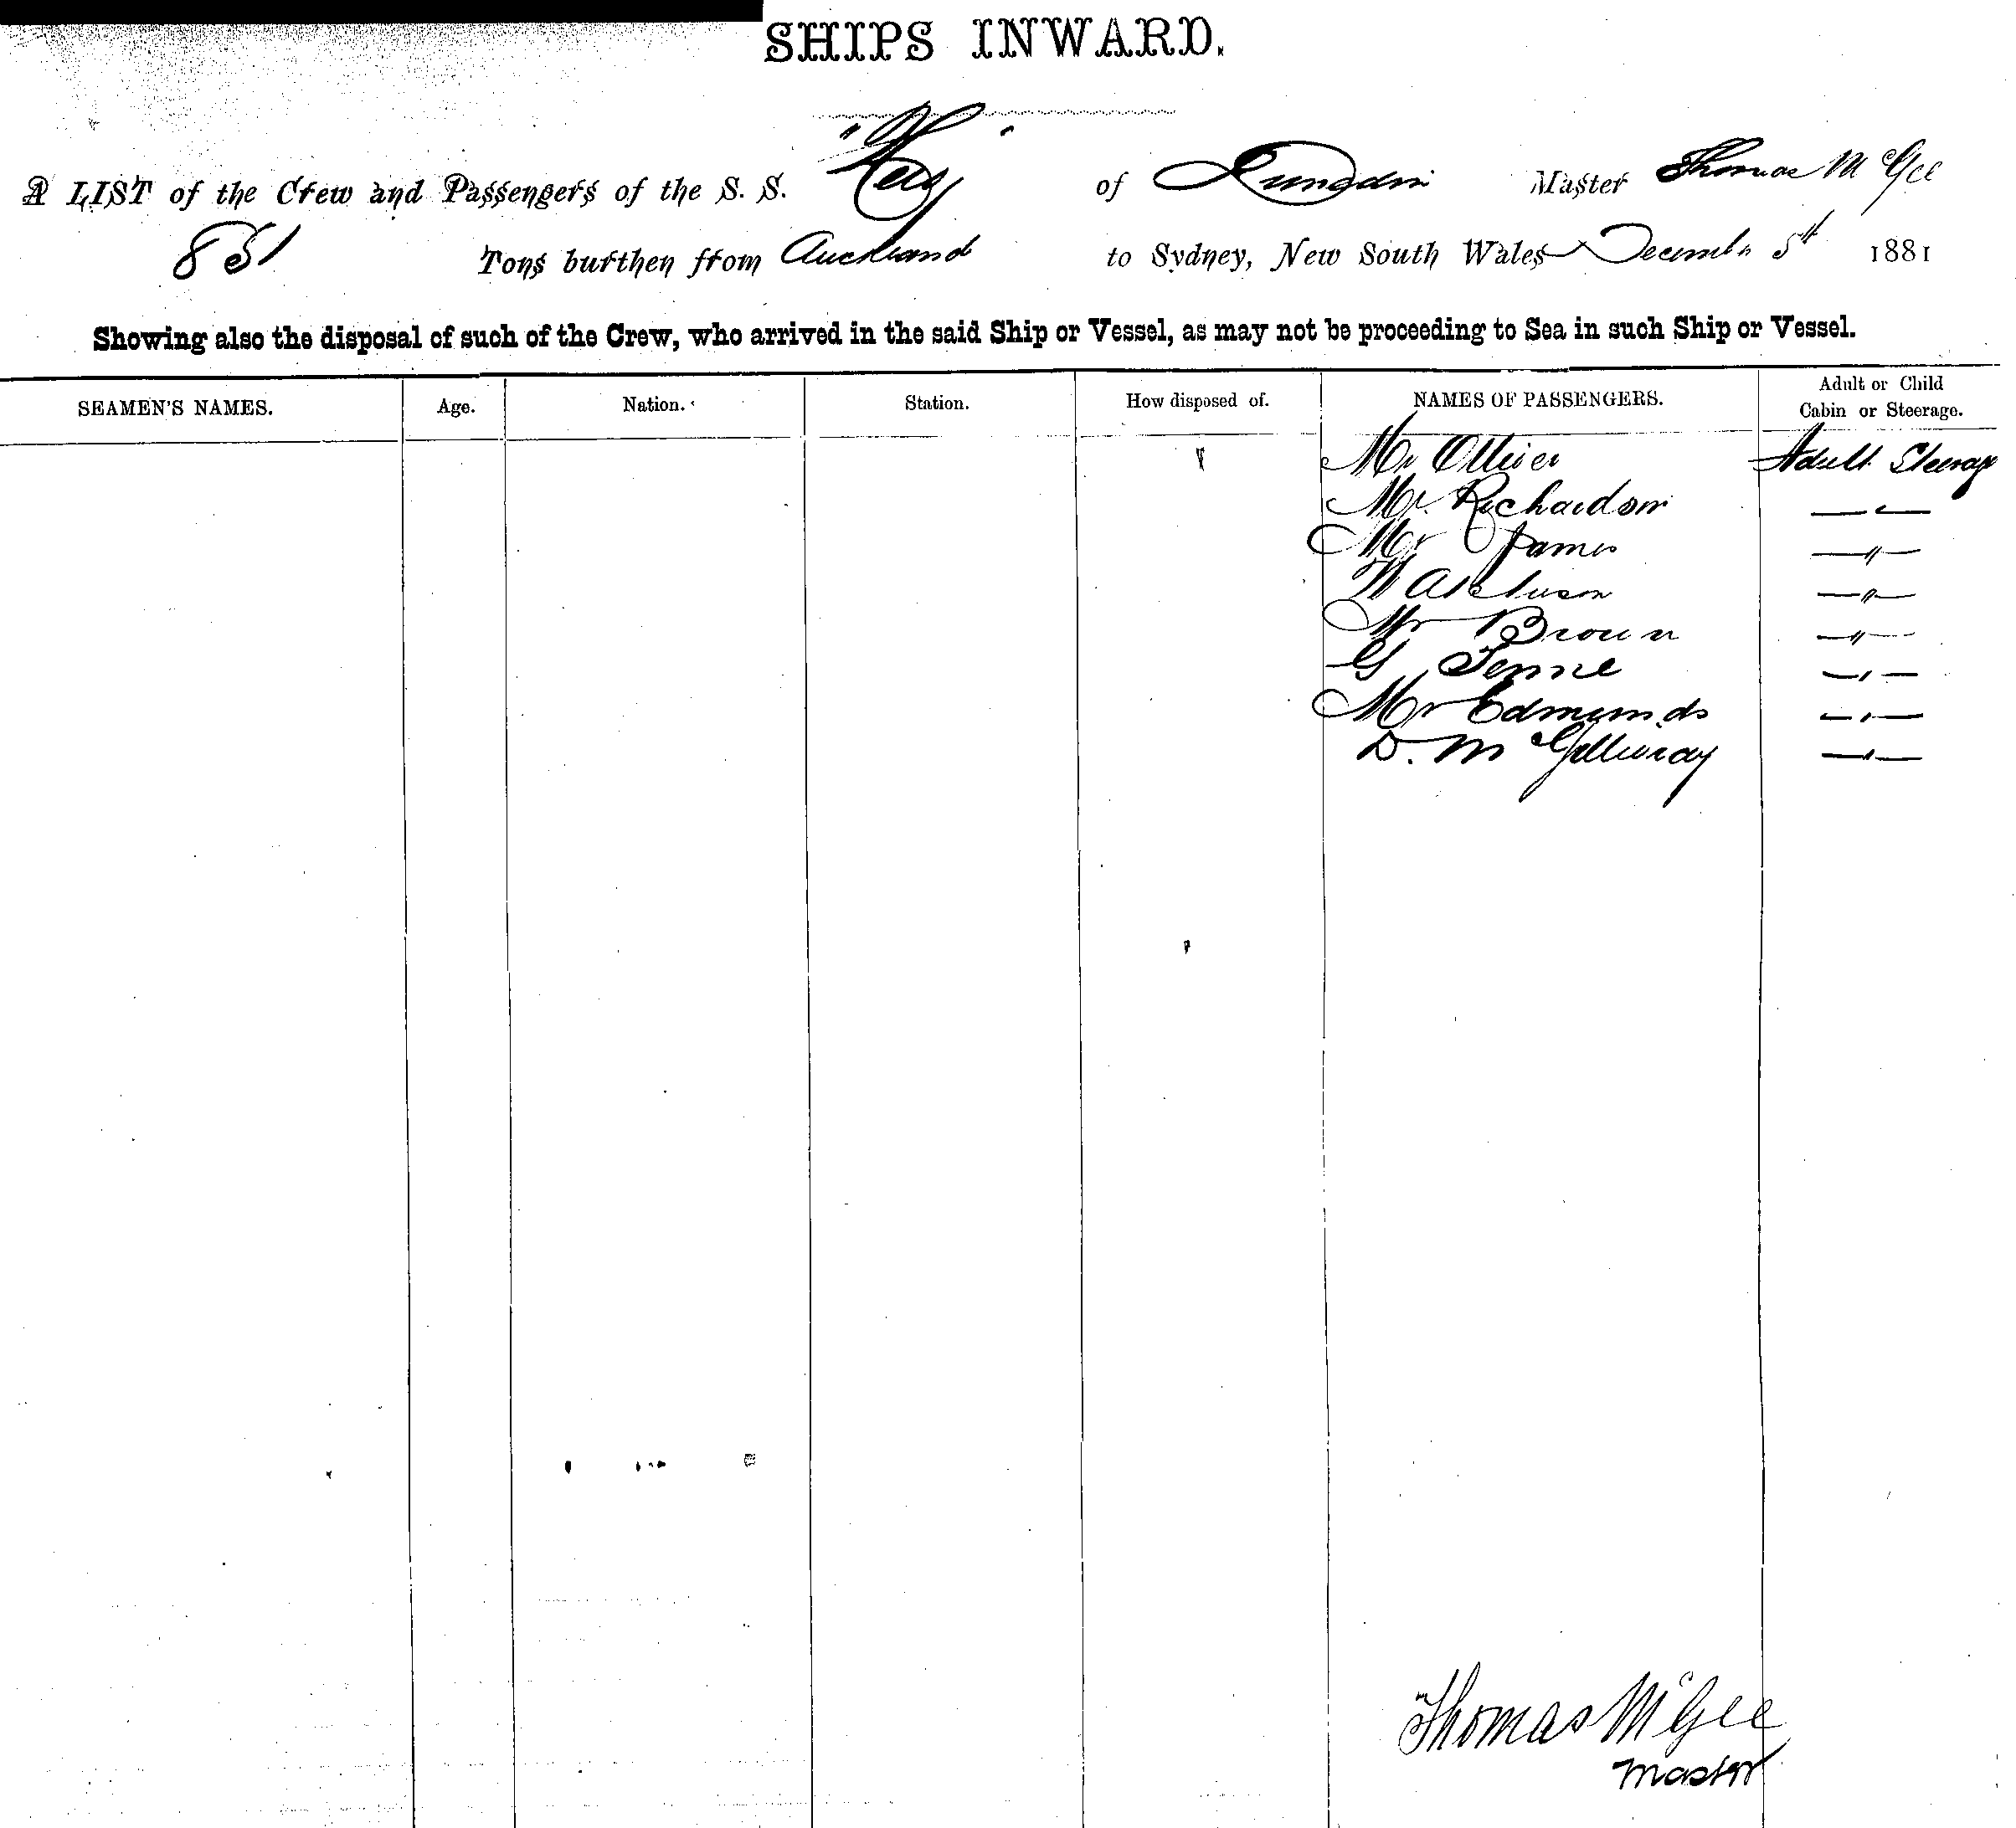 SHIPS INWARD.
A LIST of the Crew and Passengers of the S. S. "Hero" of Dunedin Master Thomas McGee
851 Tons burthen from Auckland to Sydney, New South Wales December 5th 1881
Showing also the disposal of such of the Crew, who arrived in the said Ship or Vessel, as may not be proceeding to Sea in such Ship or Vessel.
SEAMEN'S NAMES. Age. Nation. Station. How disposed of. NAMES OF PASSENGERS. Adult or Child Cabin or Steerage.
Mr Ollivier Adult Steerage
Mr Richardson — " —
Mr James — " —
W — " —
Mr Brown — " —
G Fenne — " —
Mr Edmunds — " —
D. McGillivray — " —
Thomas McGee
Master